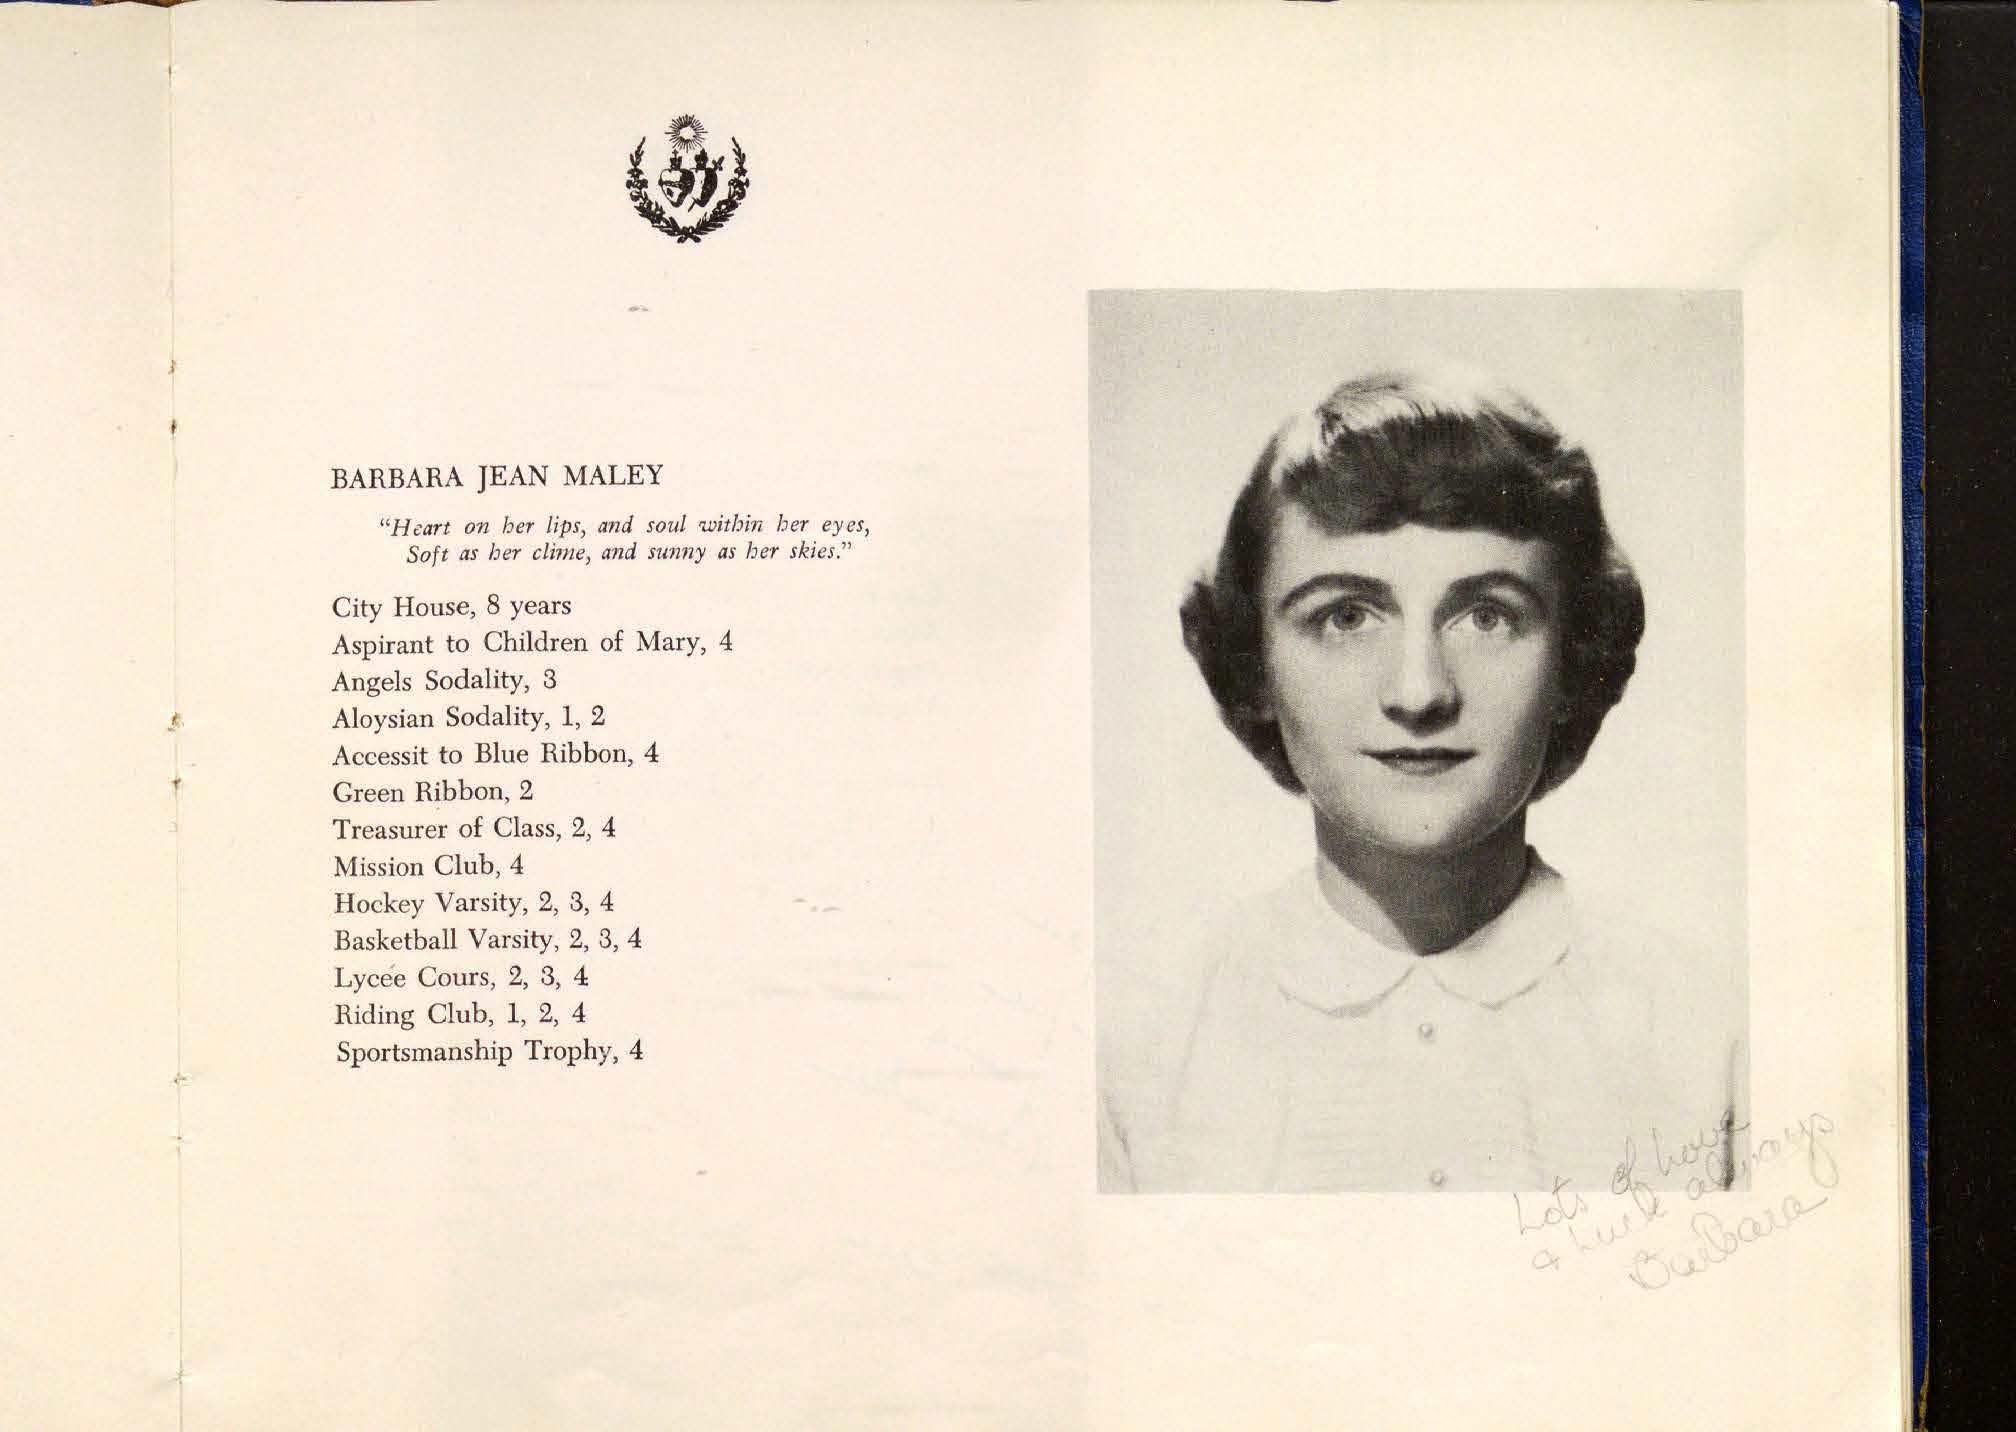 BARBARA JEAN MALEY
“Heart on her lips, and soul within her eyes,
Soft as her clime, and sunny as her skies.”
City House, 8 years
Aspirant to Children of Mary, 4
Angels Sodality, 3
Aloysian Sodality, 1, 2
Accessit to Blue Ribbon, 4
Green Ribbon, 2
Treasurer of Class, 2, 4
Mission Club, 4
Hockey Varsity, 2, 3, 4
Basketball Varsity, 2, 3, 4
Lycée Cours, 2, 3, 4
Riding Club, 1, 2, 4
Sportsmanship Trophy, 4
Lots of love
& Luck always
Barbara